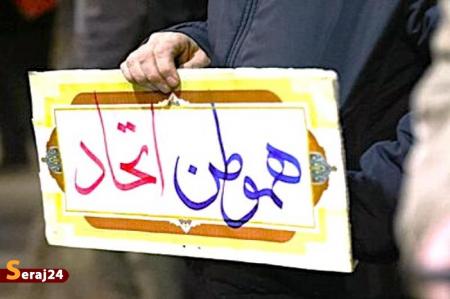 هموطن اتحاد
Seraj24